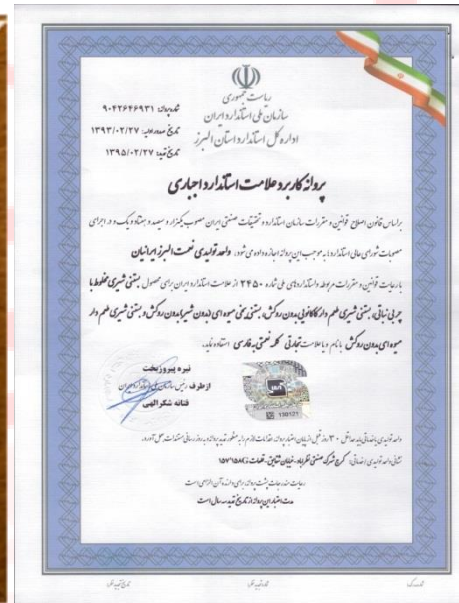 ریاست جمهوری
سازمان ملی استاندارد ایران
اداره کل استاندارد استان البرز
شماره پروانه: ۹۰۴۲۶۴۶۹۳۱
تاریخ صدور اولیه: ۱۳۹۳/۰۲/۲۷
تاریخ تمدید: ۱۳۹۵/۰۲/۲۷
پروانه کاربرد علامت استاندارد اجباری
براساس قانون اصلاح قوانین و مقررات سازمان استاندارد و تحقیقات صنعتی ایران مصوب یکهزار و سیصد و هفتاد و یک و در اجرای
مصوبات شورای عالی استاندارد به موجب این پروانه اجازه داده می شود: واحد تولیدی نعمت البرز ایرانیان
با رعایت قوانین و مقررات مربوطه و استانداردهای ملی شماره ۲۴۵۰ از علامت استاندارد ایران برای محصول بستنی شیری مخلوط با
چربی نباتی، بستنی شیری طعم دار کاکائویی بدون روکش، بستنی یخی میوه ای (بدون شیر) بدون روکش و بستنی شیری طعم دار
میوه ای بدون روکش با نام و یا علامت تجارتی کلمه نعمتی به فارسی استفاده نماید.
نیره پیروزبخت
از طرف رئیس سازمان ملی استاندارد ایران
فتانه شکرالهی
130121
واحد تولیدی یا خدماتی باید حداقل ۳۰ روز قبل از پایان اعتبار پروانه، اقدامات لازم را به منظور تمدید پروانه به روز رسانی مستندات بعمل آورد.
نشانی واحد تولیدی (خدماتی): کرج شهرک صنعتی نظرآباد، خیابان شقایق، قطعات
رعایت مندرجات پشت پروانه برای دارنده آن الزامی است
مدت اعتبار این پروانه از تاریخ تمدید سال است